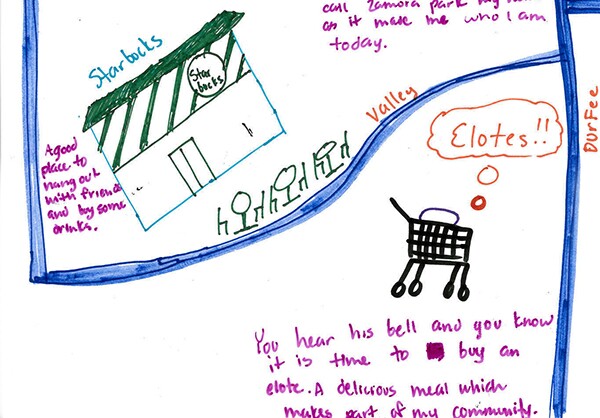 call Zamora park my
as it made me who I am
today.
Starbocks
Star
bocks
Valley
Elotes!!
Durfee
A good
place to
hang out
with friends
and buy some
drinks.
You hear his bell and you know
it is time to buy an
elote. A delicious meal which
makes part of my community.